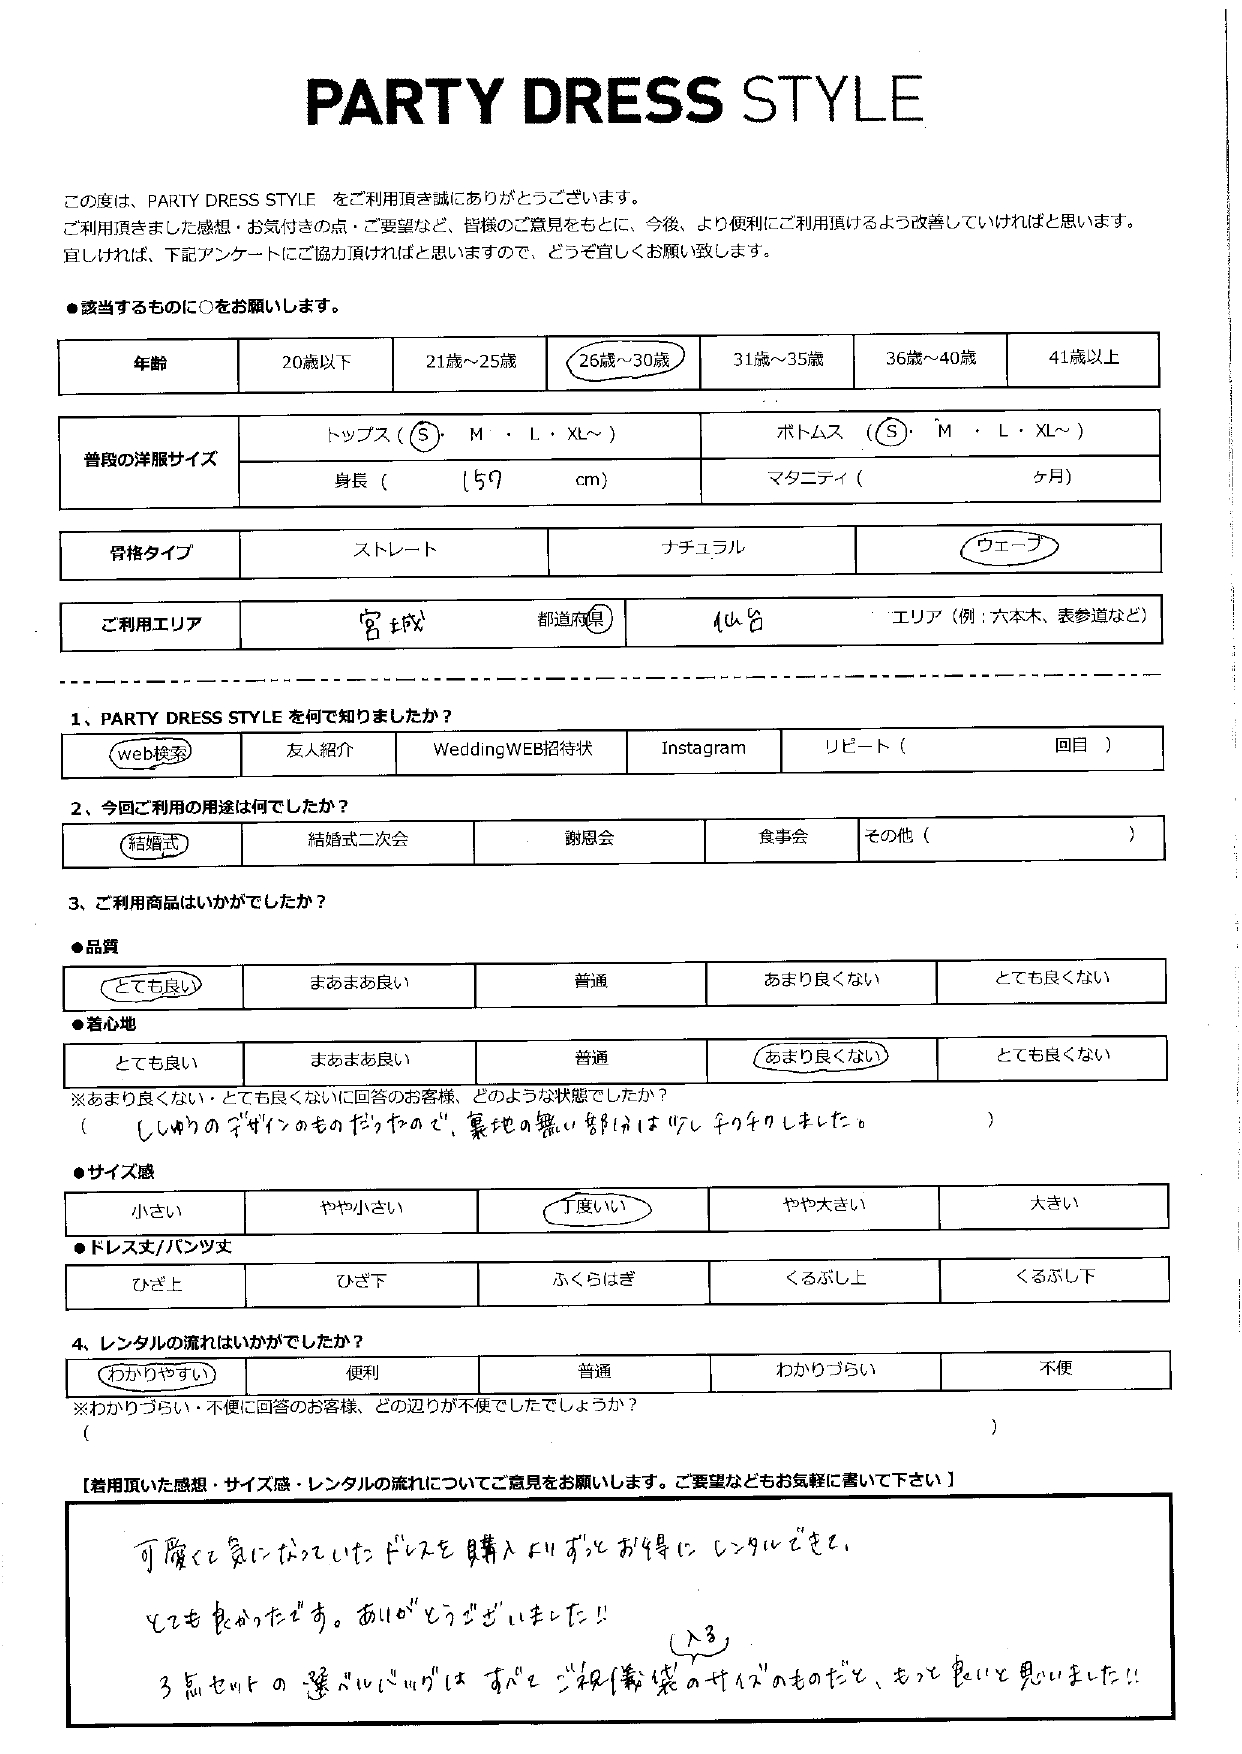 PARTY DRESS STYLE
この度は、PARTY DRESS STYLE をご利用頂き誠にありがとうございます。
ご利用頂きました感想・お気付きの点・ご要望など、皆様のご意見をもとに、今後、より便利にご利用頂けるよう改善していければと思います。
宜しければ、下記アンケートにご協力頂ければと思いますので、どうぞ宜しくお願い致します。
●該当するものに○をお願いします。
年齢 20歳以下 21歳～25歳 26歳～30歳 31歳～35歳 36歳～40歳 41歳以上
普段の洋服サイズ トップス（ S ・ M ・ L ・ XL～ ） ボトムス （ S ・ M ・ L ・ XL～ ）
身長（ 157 cm） マタニティ（ ヶ月）
骨格タイプ ストレート ナチュラル ウェーブ
ご利用エリア 宮城 都道府県 仙台 エリア（例：六本木、表参道など）
1、PARTY DRESS STYLE を何で知りましたか？
web検索 友人紹介 WeddingWEB招待状 Instagram リピート（ 回目 ）
2、今回ご利用の用途は何でしたか？
結婚式 結婚式二次会 謝恩会 食事会 その他（ ）
3、ご利用商品はいかがでしたか？
●品質
とても良い まあまあ良い 普通 あまり良くない とても良くない
●着心地
とても良い まあまあ良い 普通 あまり良くない とても良くない
※あまり良くない・とても良くないに回答のお客様、どのような状態でしたか？
（ ししゅうのデザインのものだったので、裏地の無い部分は少しチクチクしました。 ）
●サイズ感
小さい やや小さい 丁度いい やや大きい 大きい
●ドレス丈/パンツ丈
ひざ上 ひざ下 ふくらはぎ くるぶし上 くるぶし下
4、レンタルの流れはいかがでしたか？
わかりやすい 便利 普通 わかりづらい 不便
※わかりづらい・不便に回答のお客様、どの辺りが不便でしたでしょうか？
（ ）
【着用頂いた感想・サイズ感・レンタルの流れについてご意見をお願いします。ご要望などもお気軽に書いて下さい】
可愛くて気になっていたドレスを購入よりずっとお得にレンタルできて、
とても良かったです。ありがとうございました!!
入る
3点セットの選べるバッグはすべてご祝儀袋のサイズのものだと、もっと良いと思いました!!